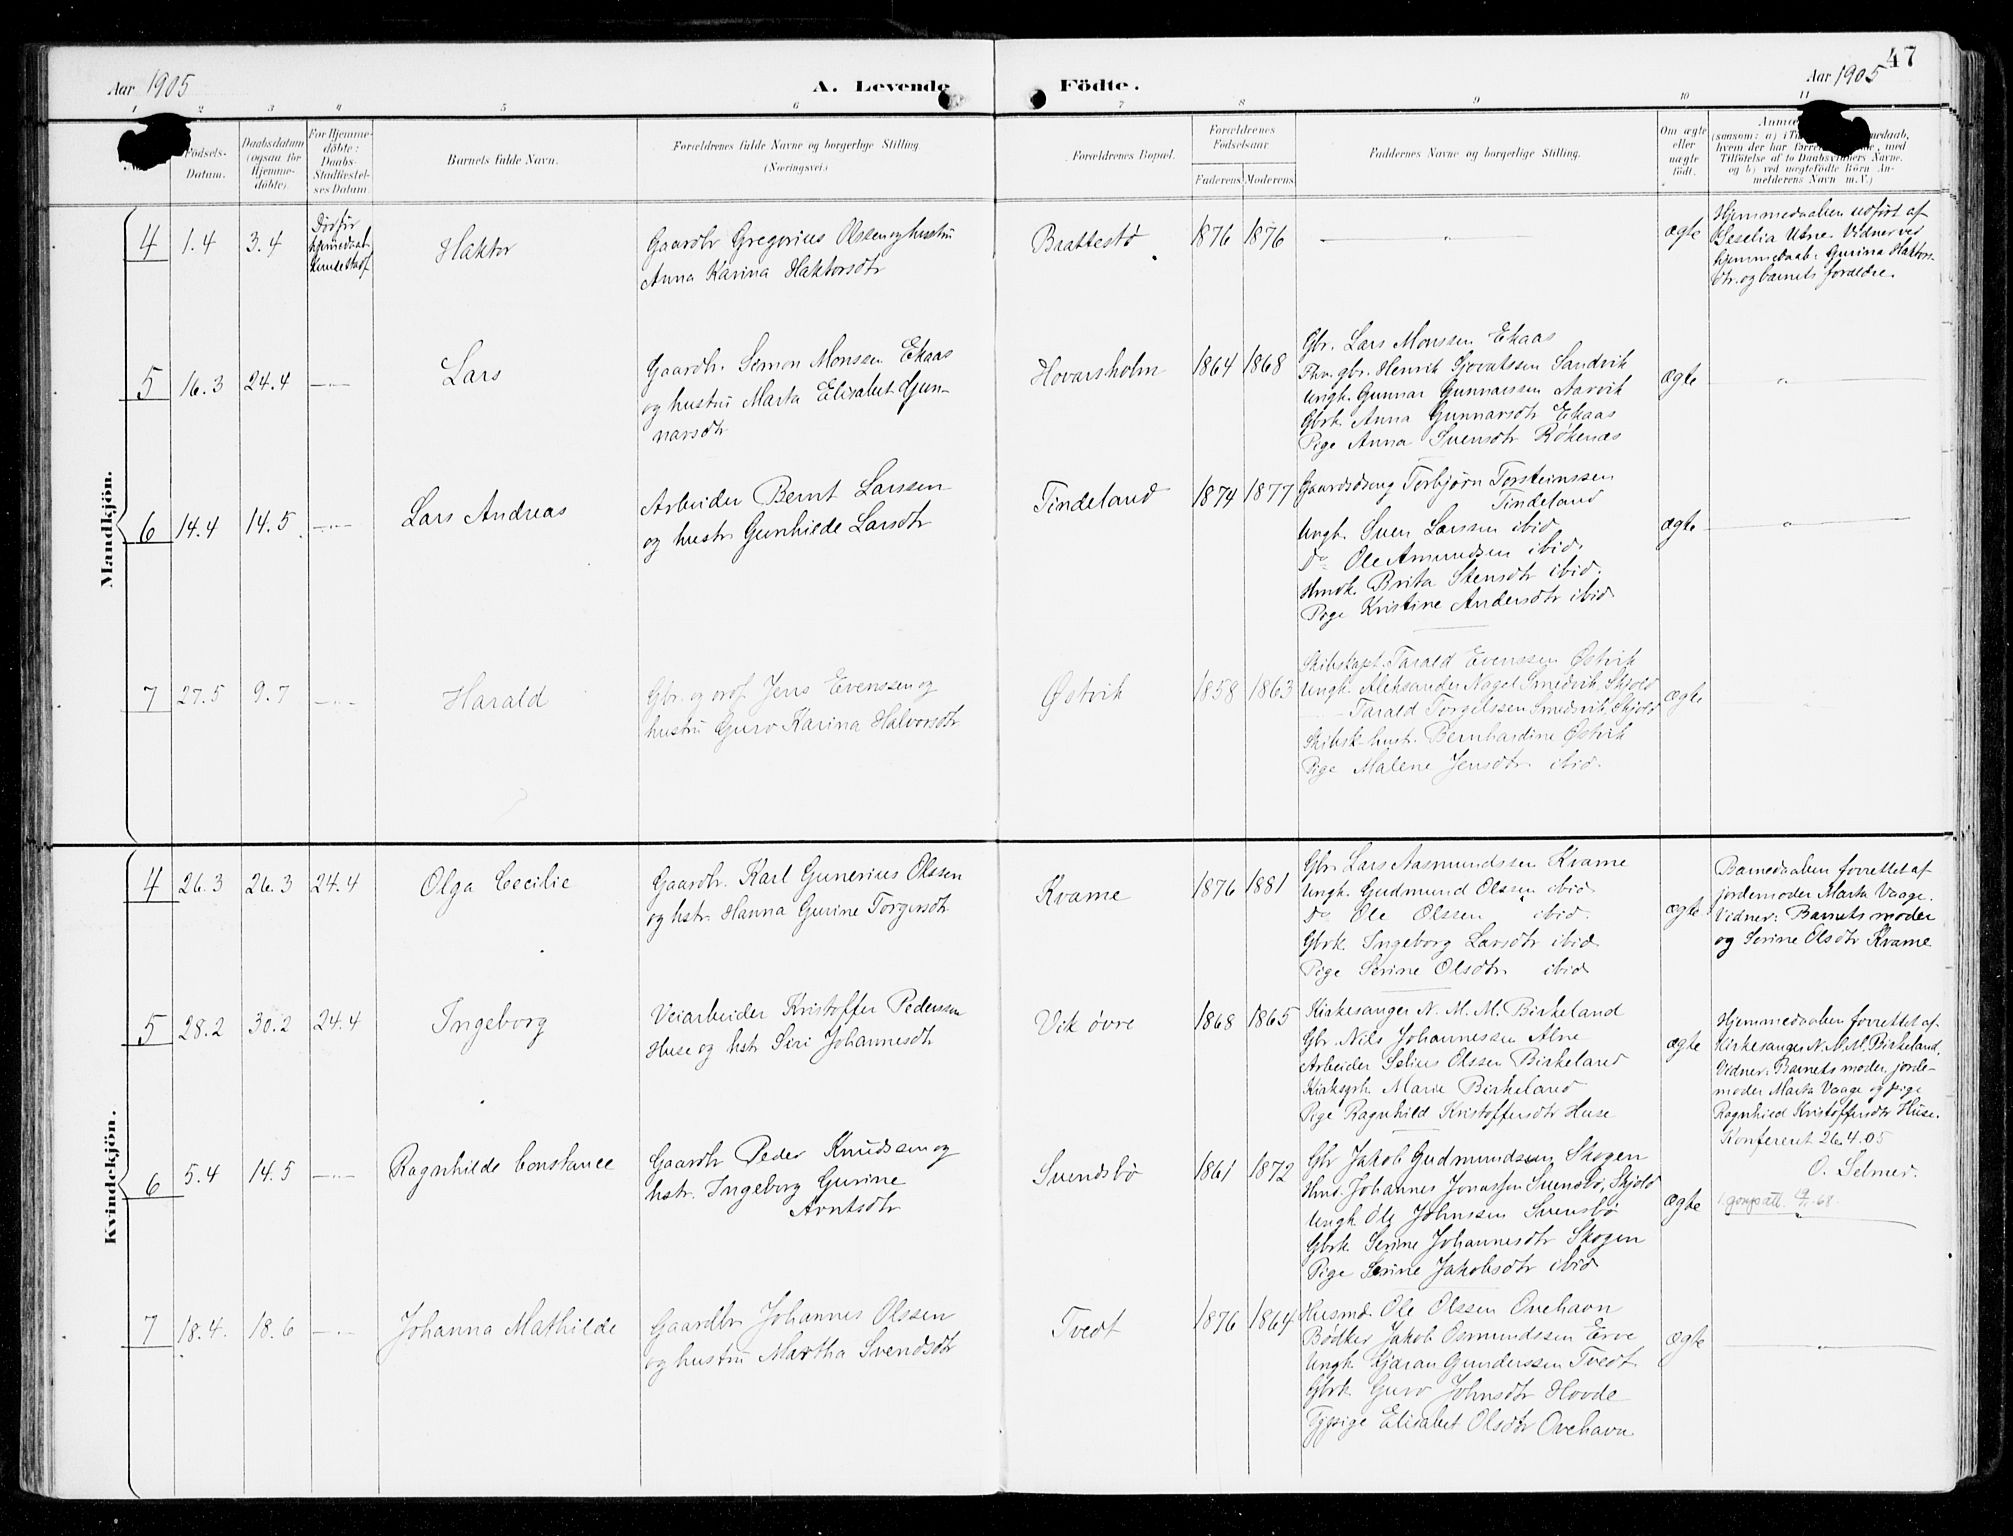 47
Aar 1905
A. Levende
Födte.
Aar 1905
1 2 3 4 5 6 7 8 9 10 11
Födsels-
Datum.
Daabsdatum
(ogsaa for
Hjemme-
döbte).
For Hjemme-
döbte:
Daabs-
Stadfæstel-
ses Datum.
Barnets fulde Navn.
Forældrenes fulde Navne og borgerlige Stilling.
(Næringsvei.)
Forældrenes Bopæl.
Forældrenes
Födselsaar.
Faderens. Moderens.
Faddernes Navne og borgerlige Stilling.
Om ægte
eller
uægte
födt.
hvem der har
Tilföielse af to Daabsvidners Navne.
og b) ved uægtefödte Börn An-
melderens Navn m. V.)
Mandkjön.
4 1.4 3.4
Død før
hjemmedaab.
kunde stadf.
Haktor
Gaardbr Gregorius Olssen og hustru
Anna Karina Haktorsdtr
Brattestø
1876 1876
— " —
ægte
Hjemmedaaben udført af
Leselia Utne. Vidner ved
hjemmedaab: Gurina Haktors-
dtr. og barnets forældre.
5 16.3 24.4 — " —
Lars
Gaardbr. Simon Monssen Ekaas
og hustru Marta Elisabet Gun-
narsdtr
Hovarsholm
1864 1868
Gbr. Lars Monssen Ekaas
Fhv. gbr. Henrik Sjovatssen Sandvik
Ungk. Gunnar Gunnarssen Aarvik
Gbrk. Anna Gunnarsdtr Ekaas
Pige Anna Svensdtr Røkenæs
ægte
— " —
6 14.4 14.5 — " —
Lars Andreas
Arbeider Bernt Larssen
og hustr Gunhilde Larsdtr
Tindeland
1874 1877
Gaardsdreng Torbjørn Torsteinssen
Tindeland
Ungk. Sven Larssen ibid
Do Ole Amundsen ibid.
Hmdk. Brita Stensdtr ibid.
Pige Kristine Andersdtr ibid
ægte
— " —
7 27.5 9.7 — " —
Harald
Gbr. og ordf. Jens Evenssen og
hustru Guro Karina Halvorsdtr
Østvik
1858 1863
Skibskapt. Tarald Evenssen Østvik
Ungk. Aleksander Nagel Smedvik, Skjold
— Tarald Torgelssen Smedvik, Skjold
Skibsk-hustr. Bernhardine Østvik
Pige Malene Jensdtr. ibid.
ægte
Kvindekjön.
4 26.3 26.3 24.4
Olga Cecilie
Gaardbr. Karl Gunerius Olssen
og hstr. Hanna Gurine Torgersdtr
Kvame
1876 1881
Gbr. Lars Aasmundssen Kvame
Ungk. Gudmund Olssen ibid
Do Ole Olssen ibid.
Gbrk. Ingeborg Larsdtr ibid
Pige Serine Olsdtr. ibid
ægte
Barnedaaben forrettet af
jordemoder Marta Vaage.
Vidner: Barnets moder
og Serine Olsdtr Kvame
5 28.2 30.2 24.4
Ingeborg
Veiarbeider Kristoffer Pederssen
Huse og hstr Siri Johannesdtr
Vik øvre
1868 1865
Kirkesanger N. M. M. Birkeland
Gbr. Nils Johannessen Alne
Arbeider Selius Olssen Birkeland
Kirksgrk. Marie Birkeland
Pige Ragnhild Kristoffersdtr Huse
ægte
Hjemmedaaben forrettet af
Kirkesanger N. M. M. Birkeland.
Vidner: Barnets moder, jorde-
moder Marta Vaage og pige
Ragnhild Kristoffersdtr Huse.
Konfereret 26.4.05
O. Selmer.
6 5.4 14.5 — " —
Ragnhilde Constance
Gaardbr Peder Knudssen og
hstr. Ingeborg Gurine
Arntsdtr
Svendsbø
1861 1872
Gbr Jakob Gudmundssen Skogen
Hmd. Johannes Jonassen Svensbø, Skjold
Ungk. Ole Johnssen Svensbø
Gbrk. Serine Johannesdtr Skogen
Pige Serine Jakobsdtr ibid
ægte
— " —
7 18.4. 18.6 — " —
Johanna Mathilde
Gaardbr. Johannes Olssen
og hustru Martha Svendsdtr
Tvedt
1876 1864
Husmd. Ole Olssen Ovehavn
Bødker Jakob Osmundssen Erve
Ungk. Kjaran Gunderssen Tvedt.
Gbrk. Guro Johnsdtr Hovde
Tjpige Elisabet Olsdtr Ovehavn
ægte
— " —